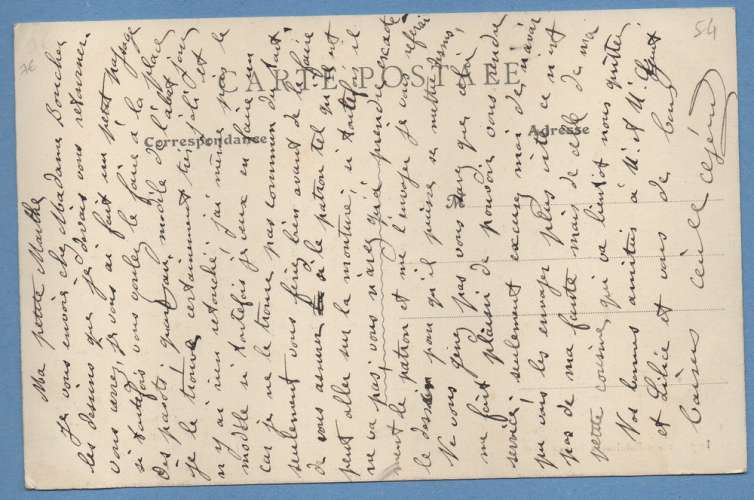 54
CARTE POSTALE
Correspondance
Adresse
Ma petite Marthe
Je vous envoie chez Madame Boucher
les dessins que je devais vous retourner.
vous verrez, je vous ai fait un petit
si toutefois vous voulez le faire à la place
des quant au modèle de l'abat jour
je le trouve certainement très joli et
n'y ai rien retouché, j'ai même pas le
modèle si toutefois je veux en faire un
car je ne le trouve pas commun du tout,
seulement vous ferez bien avant de le faire
de vous assurer si le patron tel qu'il est
peut aller sur la monture, si toutefois il
ne va pas, vous n'avez qu'à prendre
ment le patron et me l'envoyer je vous
le dessin pour qu'il puisse se mettre
Ne vous gêné pas vous que cela
me fait plaisir de pouvoir vous rendre
service, seulement excusez moi de n'avoir
pu vous les envoyer plus vite ce n'est
pas de ma faute mais de celle de ma
petite cousine, qui va bientôt nous quitter.
Nos bonnes amitiés à Mr et Me
et Lilice et vous de bons
baisers Cécile